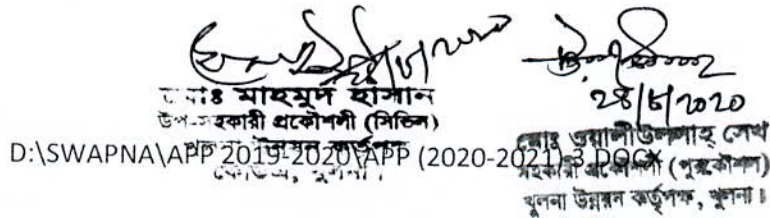 28/6/2020
মোঃ মাহমুদ হাসান
উপ-সহকারী প্রকৌশলী (সিভিল)
খুলনা উন্নয়ন কর্তৃপক্ষ
খুলনা।
মোঃ ওয়ালীউললাহ্ সেখ
সহকারী প্রকৌশলী (পুরকৌশল)
খুলনা উন্নয়ন কর্তৃপক্ষ, খুলনা।
D:\SWAPNA\APP 2019-2020\APP (2020-2021) 3.DOCX